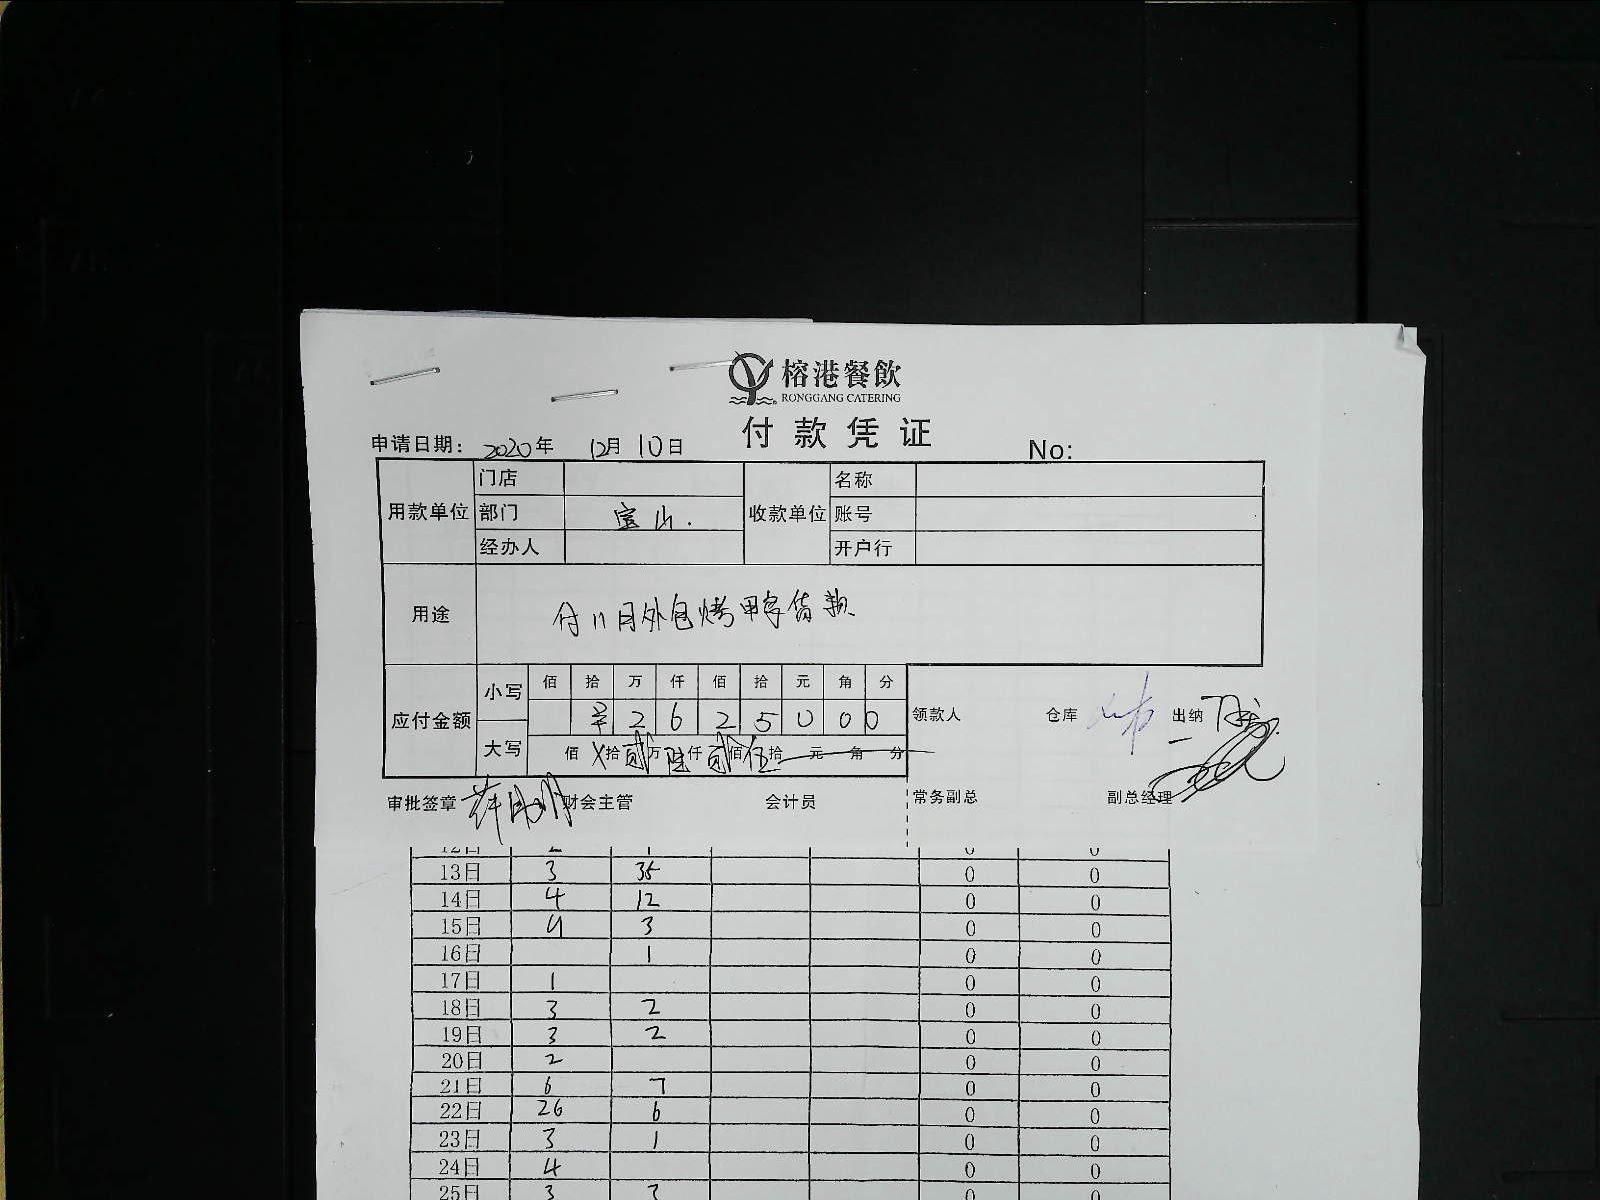 榕港餐飲
RONGGANG CATERING
付款凭证
申请日期: 2020年 12月 10日 No:
用款单位 门店 收款单位 名称
部门 宝山. 账号
经办人 开户行
用途 付11月外包烤鸭货款
应付金额 小写 佰 拾 万 仟 佰 拾 元 角 分
¥ 2 6 2 5 0 0 0
大写 佰 X拾 贰万 陆仟 贰佰 伍拾 元 角 分
领款人 仓库 出纳
审批签章 财会主管 会计员 常务副总 副总经理
12日 2 1 0 0
13日 3 35 0 0
14日 4 12 0 0
15日 4 3 0 0
16日 1 0 0
17日 1 0 0
18日 3 2 0 0
19日 3 2 0 0
20日 2 0 0
21日 6 7 0 0
22日 26 6 0 0
23日 3 1 0 0
24日 4 0 0
25日 3 2 0 0